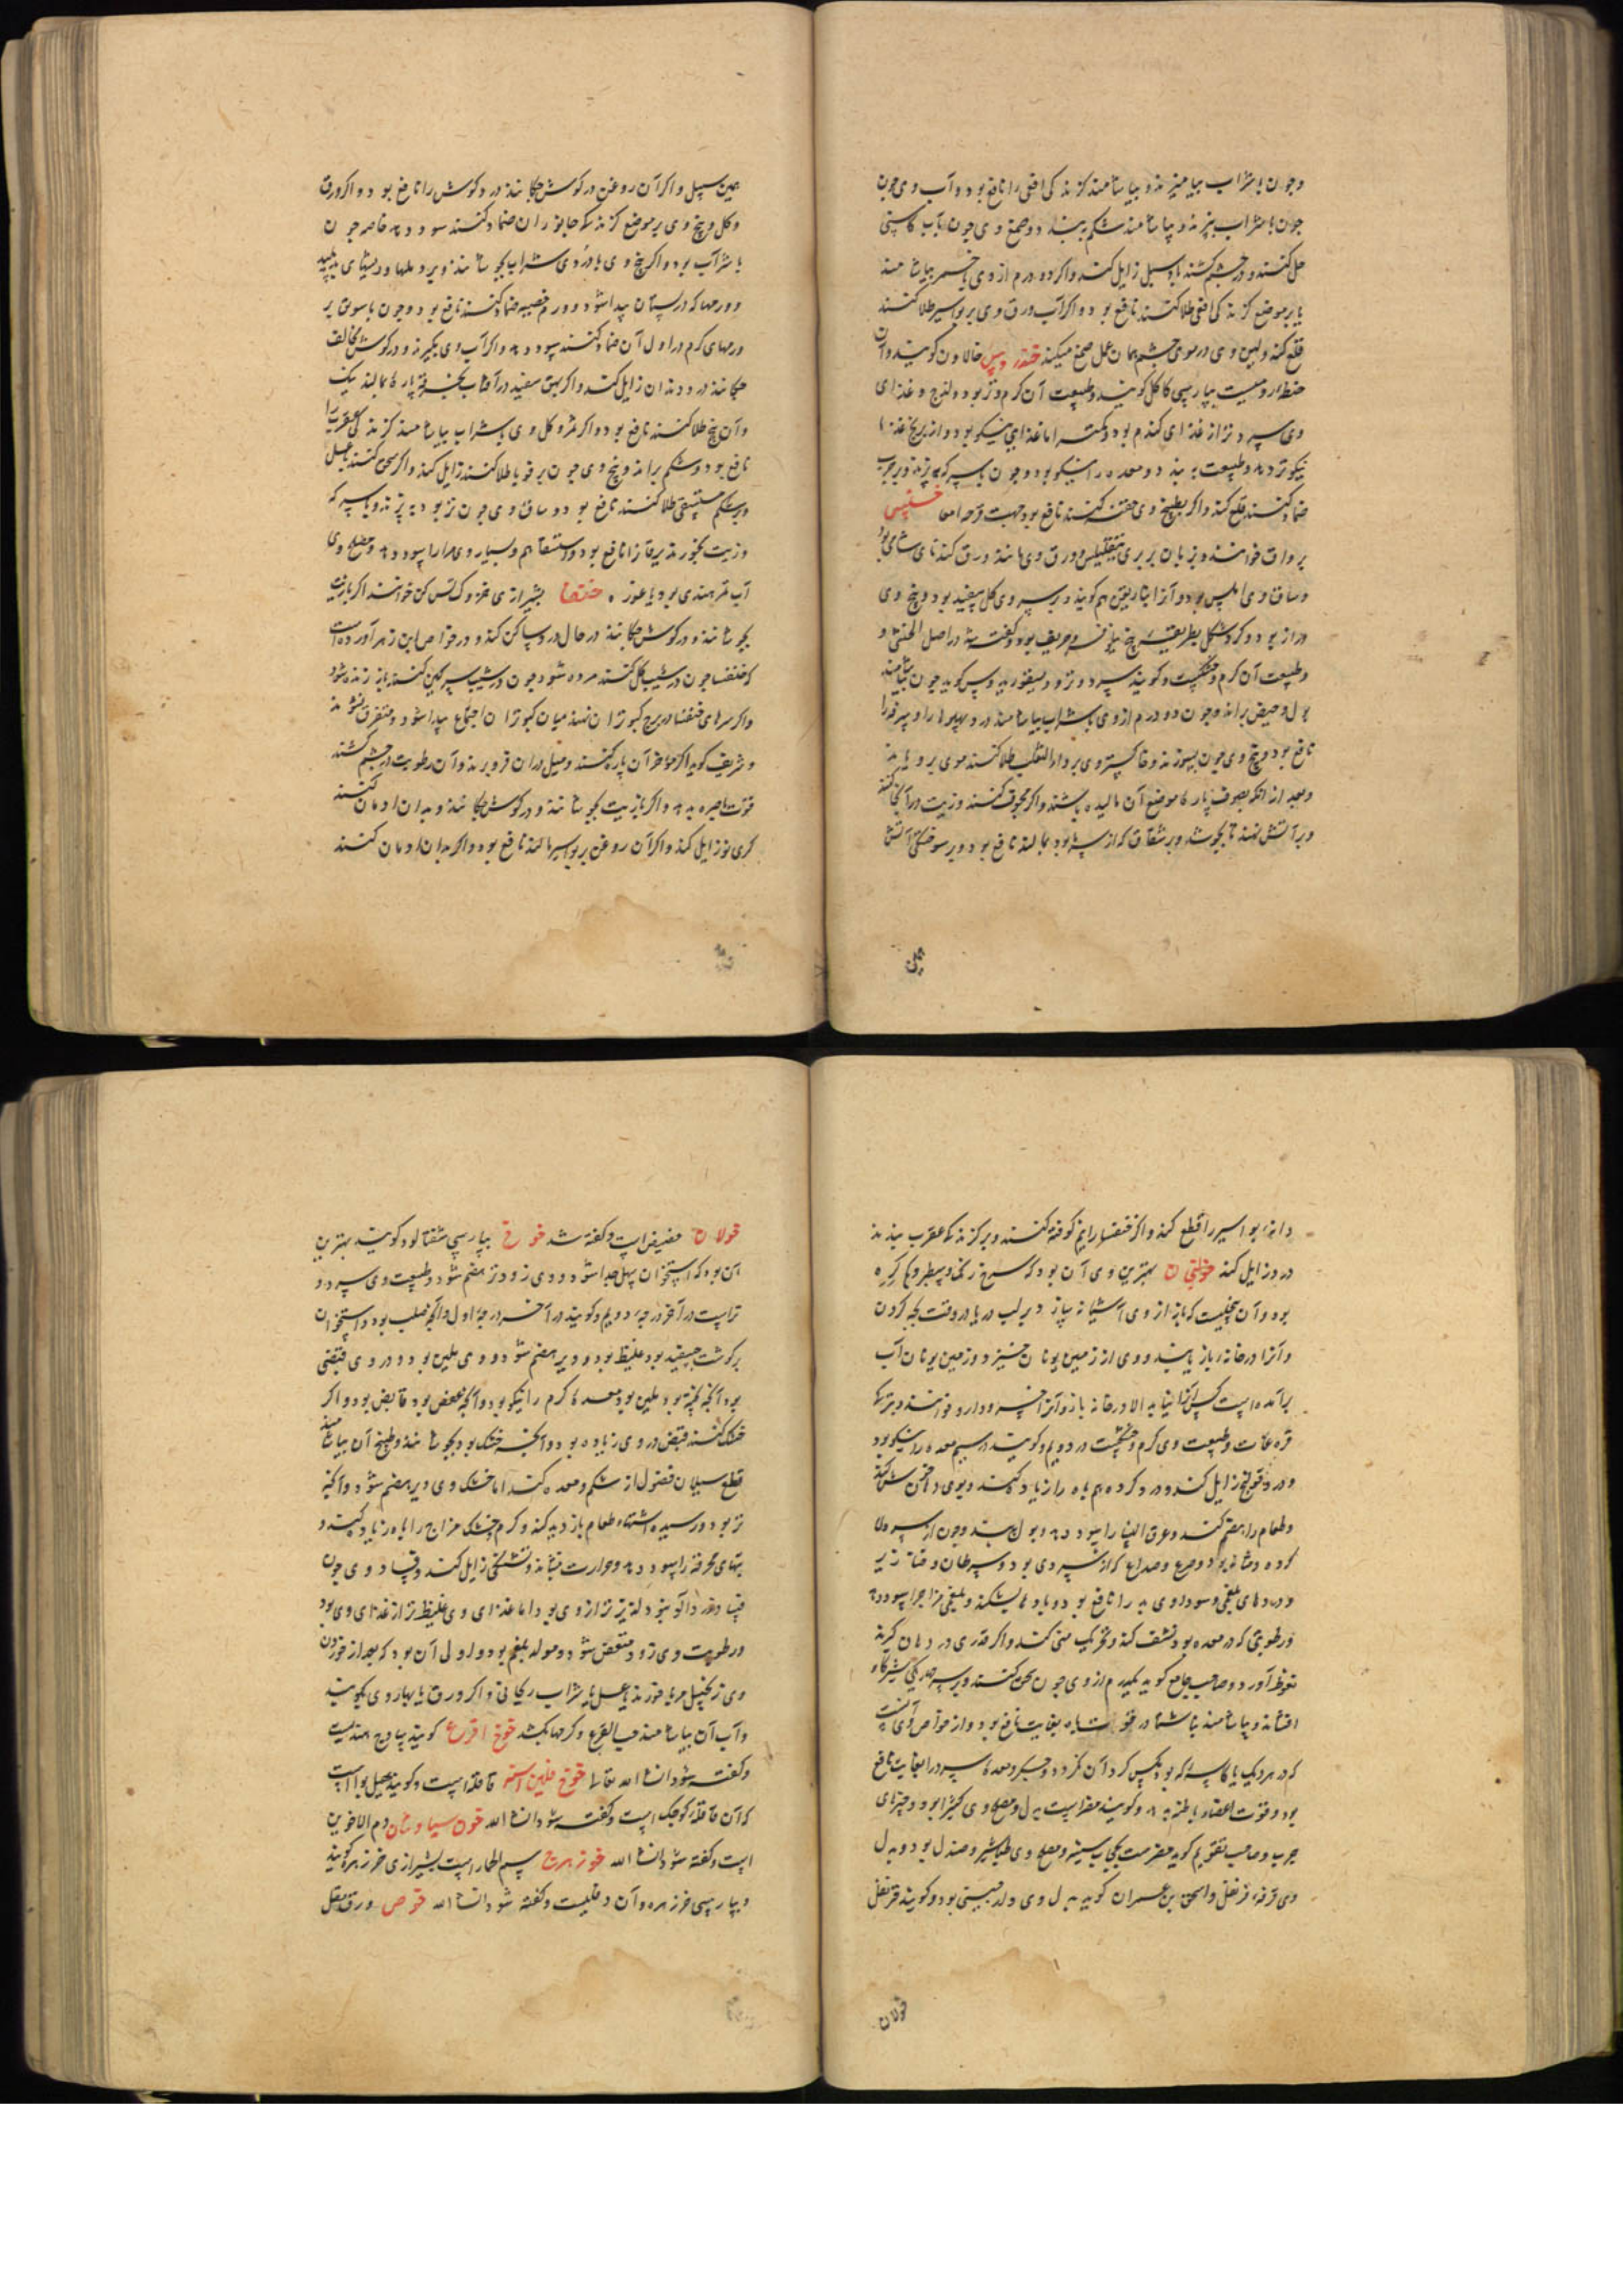 وچون با شراب بیامیزند و بیاشامند کزندکی افعی را نافع بود و آب وی چون
چون با شراب بپزند و بیاشامند شکم ببندد و صمغ وی چون بآب کاسنی
حل کنند و در چشم کشند سبل زایل کند و اکر دو درم از وی با خمر بیاشامند
یا بر موضع کزندکی افعی طلا کنند نافع بود و اکر آب ورق وی بر بواسیر طلا کنند
قلع کند و لبن وی در موی چشم همان عمل صمغ میکند خندروس خالاون کویند و آن
حنطه رومیست بپارسی کاکل کویند و طبیعت آن کرم و تر بود و لزج و غذای
وی سرد تر از غذای کندم بود و کمتر اما غذای نیکو بود و از برنج غذا
نیکوتر دهد و طبیعت ببندد و معده را نیکو بود و چون با سرکه بپزند و بر جرب
ضماد کنند قلع کند و اکر بطبیخ وی حقنه کنند نافع بود جهت قرحه امعا خنثی
برواق خوانند و بزبان بربری تیقلیس و ورق وی مانند ورق کندنای شامی بود
وساق وی املس بود و آنرا انثاریقن هم کویند و بر سر وی کل سفید بود و بیخ وی
دراز بود و کرد شکل بطریقه بیخ بلوف و حریف بود و کفته شد در اصل الخنثی و
وطبیعت آن کرم و خشکست و کویند سرد و تر و دیسقوریدوس کوید چون بیاشامند
بول و حیض براند و چون دو درم از وی با شراب بیاشامند درد پهلوها را و سرفه را
نافع بود و بیخ وی چون بسوزند و خاکستر وی بر داء الثعلب طلا کنند موی برویاند
و بعد از آنکه بصوف پاره موضع آن مالیده باشند و اکر مجوف کنند و زیت در آنجا کنند
و بر آتش نهند تا بجوشد و بر شقاق که از سرما بود بمالند نافع بود و بر سوختکی آتش
همین سبیل و اکر آن روغن در کوش چکانند درد کوش را نافع بود و اکر ورق
و کل و بیخ وی بر موضع کزندکی جانوران ضماد کنند سود دهد خاصه چون
با شراب بود و اکر بیخ وی با دردی شراب بجوشانند و بر دملها و ریشهای پلید
و ورمها که در پستان پیدا شود و ورم خصیه ضماد کنند نافع بود و چون با سویق بر
ورمهای کرم در اول آن ضماد کنند سود دهد و اکر آب وی بکیرند و در کوش مخالف
چکانند درد دندان زایل کند و اکر بهق سفید در آفتاب بخرقه پاره بمالند نیک
و آن بیخ طلا کنند نافع بود و اکر ثمر و کل وی بشراب بیاشامند کزندکی عقرب را
نافع بود و شکم براند و بیخ وی چون بر قوبا طلا کنند زایل کند و اکر سحق کنند بعسل
و بر شکم مستسقی طلا کنند نافع بود و ساق وی چون تر بود بپزند و با سرکه
و زیت بخورند یرقان را نافع بود و استسقا هم و بسیار وی مدارا سود دهد و مصلح وی
آب تمر هندی بود یا غوره خنفسا بشیرازی خزوک کش کن خوانند اکر با زیت
بجوشانند و در کوش چکانند در حال درد ساکن کند و در خواص ابن زهر آورده است
که خنفسا چون در شیب کل کنند مرده شود چون در شیب سرکین کنند باز زنده شود
و اکر سرهای خنفسا در برج کبوتران نهند میان کبوتران اجتماع پیدا شود و متفرق نشوند
و شریف کوید اکر مؤخر آن پاره کنند و میل در آن فرو برند و آن رطوبت در چشم کشند
قوت باصره دهد و اکر با زیت بجوشانند و در کوش چکانند و بدان ادمان کنند
کری نو زایل کند و اکر آن روغن بر بواسیر مالند نافع بود و اکر بدان ادمان کنند
دانه بواسیر را قطع کند و اکر خنفسا را نیم کوفته کنند و بر کزندکی عقرب بندند
درد زایل کند خولنجان بهترین وی آن بود که سرخ رنک و سطبر و باکره
بود و آن بیخیست که باز از وی آشیانه سازد بر لب دریا در وقت بچه کردن
و آنرا در خانه باز یابند و وی از زمین یونان خیزد و زمین یونان آب
برآمده است کس آنرا نیابد الا در خانه باز و آنرا خسرو دارو خوانند و بترکی
قره غات و طبیعت وی کرم و خشکست در دویم و کویند در سیم معده را نیکو بود
و درد قولنج زایل کند و درد کرده هم باه را زیاده کند و بوی دهن خوش کند
و طعام را هضم کند و عرق النسا را سود دهد و بول ببندد چون از سردی
کرده و مثانه بود و صرع و صداع که از سردی بود و سرطان و خنازیر
و دردهای بلغمی و سوداوی بدن را نافع بود و بادها بشکند و بلغمی مزاج را سود دهد
و رطوبتی که در معده بود نشف کند و تحریک منی کند و اکر قدری در دهان کیرند
نعوظ آورد و صاحب جامع کوید یکدرم از وی چون سحق کنند و بر سر یکی شیر کاو
افشانند و بیاشامند ناشتا در قوت باه بغایت نافع بود و از خواص وی آنست
که در هر دیک یا کاسه که بود مکس کرد آن نکردد و جکر و معده سرد را بغایت نافع
بود و قوت اعضاء باطنه بدهد و کویند مضر است بدل و مصلح وی کثیرا بود و چیزهای
چرب و صاحب تقویم کوید مضرست بحجاب سینه و مصلح وی طباشیر و صندل بود و بدل
وی قرفه قرنفل و اسحق بن عمران کوید بدل وی دارچینی بود و کویند قرنفل
خولان
خولان حضیض است و کفته شد خوخ بپارسی شفتالود کویند بهترین
آن بود که استخوان سهل جدا شود و وی زودتر هضم شود و طبیعت وی سرد و
تراست در آخر درجه دویم و کویند در آخر درجه اول و آنچه صلب بود و استخوان
بر کوشت چسفیده بود غلیظ بود و دیر هضم شود و وی ملین بود و در وی قبضی
بود آنچه پخته بود ملین بود معده کرم را نیکو بود و آنچه عفص بود قابض بود و اکر
خشک کنند قبض در وی زیاده بود و آنچه خشک بود بجوشانند و طبیخ آن بیاشامند
قطع سیلان فضول از شکم و معده کند اما خشک وی دیر هضم شود و آنچه
تر بود و رسیده اشتهاء طعام باز دید کند و کرم و خشک مزاج را باه زیاده کند و
تبهای محرقه را سود دهد و حرارت بنشاند و تشنکی زایل کند و فساد وی چون
فساد زردآلو نبود لذیذتر از وی بود اما غذای وی غلیظ تر از غذای وی بود
و رطوبت وی زود متعفن شود و مولد بلغم بود و اولی آن بود که بعد از خوردن
وی زنجبیل مربا خورند یا عسل یا شراب ریحانی و اکر ورق یا بهار وی بکوبند
و آب آن بیاشامند حب القرع و کرمها بکشد خوخ اقرع کویند
و کفته شود انشاء الله تعالی خوخ قاقله است و کویند هیل بوا است
که آن قاقله کوچک است و کفته شود انشاء الله خون سیاوشان دم الاخوین
است و کفته شود انشاء الله خوزهرج سم الحمار است بشیرازی خرزهره کویند
و بپارسی خرزهره و آن دفلیست و کفته شود انشاء الله خوص ورق مقل